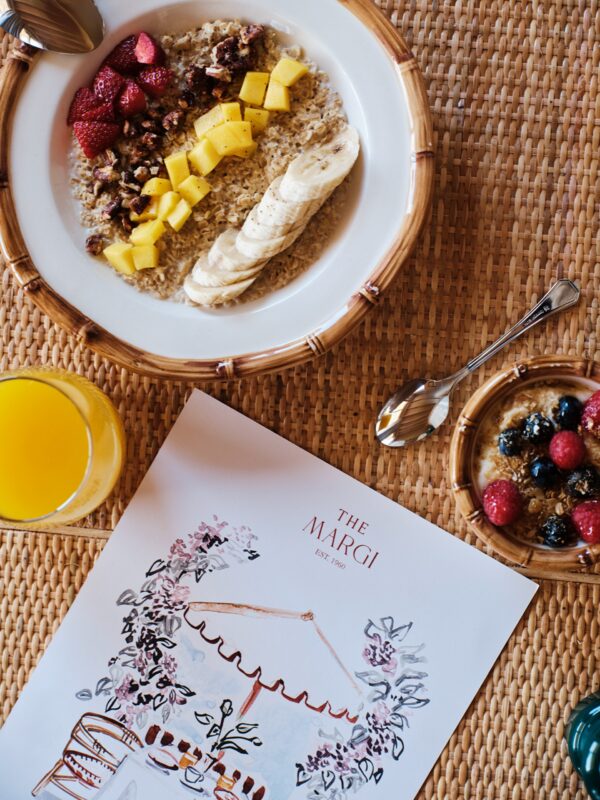 THE
MARGI
EST. 1960